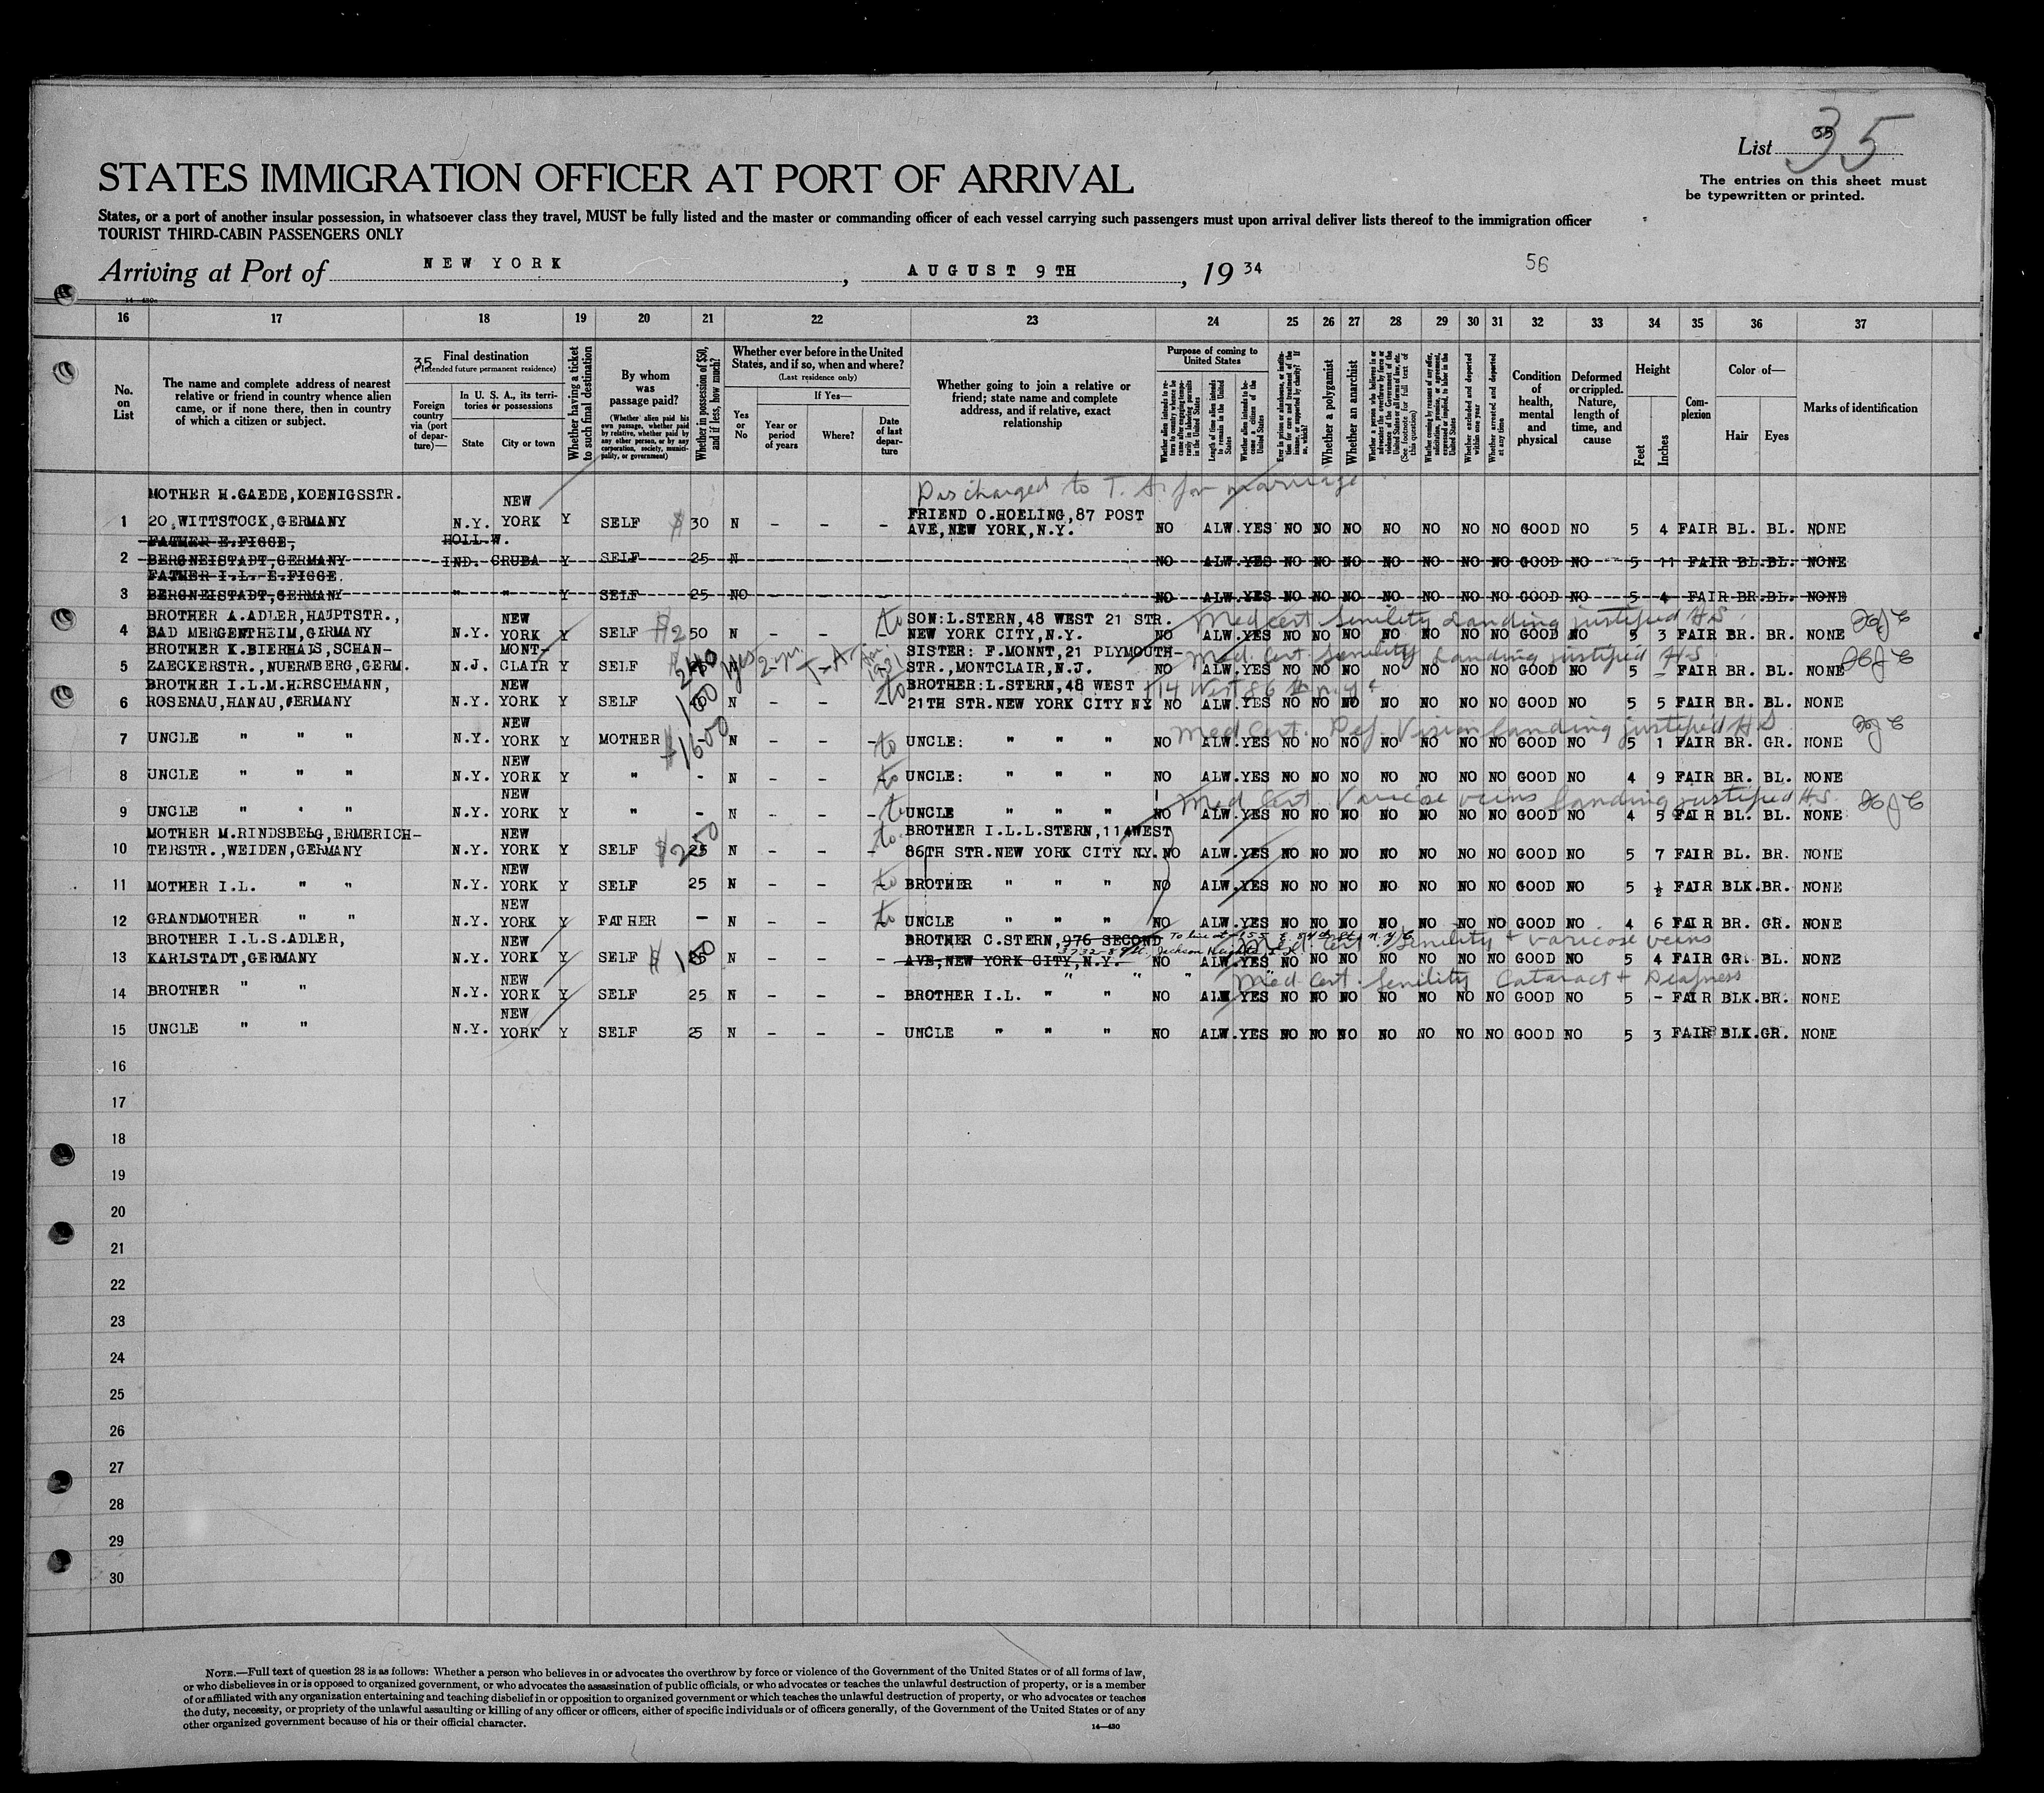 List 35
35
The entries on this sheet must
be typewritten or printed.
STATES IMMIGRATION OFFICER AT PORT OF ARRIVAL
States, or a port of another insular possession, in whatsoever class they travel, MUST be fully listed and the master or commanding officer of each vessel carrying such passengers must upon arrival deliver lists thereof to the immigration officer
TOURIST THIRD-CABIN PASSENGERS ONLY
Arriving at Port of NEW YORK, AUGUST 9TH, 1934
56
16 17 18 19 20 21 22 23 24 25 26 27 28 29 30 31 32 33 34 35 36 37
No. on List
The name and complete address of nearest relative or friend in country whence alien came, or if none there, then in country of which a citizen or subject.
35
Final destination
(Intended future permanent residence)
Foreign country via (port of departure)—
In U. S. A., its territories or possessions
State
City or town
Whether having a ticket to such final destination
By whom was passage paid?
(Whether alien paid his own passage, whether paid by relative, whether paid by any other person, or by any corporation, society, municipality, or government)
Whether in possession of $50, and if less, how much?
Whether ever before in the United States, and if so, when and where?
(Last residence only)
Yes or No
If Yes—
Year or period of years
Where?
Date of last departure
Whether going to join a relative or friend; state name and complete address, and if relative, exact relationship
Purpose of coming to United States
Length of time alien intends to remain in the United States
Whether alien intends to become a citizen of the United States
Whether a polygamist
Whether an anarchist
Whether excluded and deported within one year
Whether arrested and deported at any time
Condition of health, mental and physical
Deformed or crippled. Nature, length of time, and cause
Height
Feet
Inches
Complexion
Color of—
Hair
Eyes
Marks of identification
Discharged to T. A. for marriage
MOTHER H.GAEDE,KOENIGSSTR. NEW FRIEND O.HOELING,87 POST
1 20,WITTSTOCK,GERMANY N.Y. YORK Y SELF $ 30 N - - - AVE,NEW YORK,N.Y. NO ALW. YES NO NO NO NO NO NO NO GOOD NO 5 4 FAIR BL. BL. NONE
FATHER E.FIGGE, HOLL W.
2 BERGNEISTADT,GERMANY IND. CRUBA Y SELF 25 N NO ALW. YES NO NO NO NO NO NO NO GOOD NO 5 11 FAIR BL. BL. NONE
FATHER I.L. E.FIGGE.
3 BERGNEISTADT,GERMANY " " Y SELF 25 NO NO ALW. YES NO NO NO NO NO NO NO GOOD NO 5 4 FAIR BR. BL. NONE
BROTHER A.ADLER,HAUPTSTR., NEW to SON:L.STERN,48 WEST 21 STR. Med cert Senility Landing justified HS
4 BAD MERGENTHEIM,GERMANY N.Y. YORK Y SELF $250 N - - NEW YORK CITY,N.Y. NO ALW. YES NO NO NO NO NO NO NO GOOD NO 5 3 FAIR BR. BR. NONE
BROTHER K.BIERHALS,SCHAN- MONT- SISTER: F.MONNT,21 PLYMOUTH- Med. Cert. Senility Landing justified HS
5 ZAECKERSTR.,NUERNBERG,GERM. N.J. CLAIR Y SELF 240 yes 2-yr. 1931 STR.,MONTCLAIR,N.J. NO ALW. YES NO NO NO NO NO NO NO GOOD NO 5 - FAIR BR. BL. NONE
BROTHER I.L.M.HIRSCHMANN, NEW to BROTHER:L.STERN,48 WEST 114 West 86 St n.y.c
6 ROSENAU,HANAU,GERMANY N.Y. YORK Y SELF 100 N - - - 21TH STR.NEW YORK CITY NY NO ALW. YES NO NO NO NO NO NO NO GOOD NO 5 5 FAIR BR. BL. NONE
NEW Med Cert. Def. Vision Landing justified HS
7 UNCLE " " " N.Y. YORK Y MOTHER $1600 - N - - - to UNCLE: " " " NO ALW. YES NO NO NO NO NO NO NO GOOD NO 5 1 FAIR BR. GR. NONE
NEW
8 UNCLE " " " N.Y. YORK Y " - N - - to UNCLE: " " " NO ALW. YES NO NO NO NO NO NO NO GOOD NO 4 9 FAIR BR. BL. NONE
NEW Med Cert. Varicose veins Landing justified HS.
9 UNCLE " " " N.Y. YORK Y " - N - - - to UNCLE " " " NO ALW. YES NO NO NO NO NO NO NO GOOD NO 4 5 FAIR BL. BL. NONE
MOTHER M.RINDSBERG,ERMERICH- NEW to BROTHER I.L.L.STERN,114WEST
10 TERSTR.,WEIDEN,GERMANY N.Y. YORK Y SELF $250 25 N - - - 86TH STR.NEW YORK CITY N.Y. NO ALW. YES NO NO NO NO NO NO NO GOOD NO 5 7 FAIR BL. BR. NONE
NEW
11 MOTHER I.L. " " N.Y. YORK Y SELF 25 N - - - to BROTHER " " " NO ALW. YES NO NO NO NO NO NO NO GOOD NO 5 ½ FAIR BLK.BR. NONE
NEW
12 GRANDMOTHER " " N.Y. YORK Y FATHER - N - - to UNCLE " " " NO ALW. YES NO NO NO NO NO NO NO GOOD NO 4 6 FAIR BR. GR. NONE
BROTHER I.L.S.ADLER, NEW BROTHER C.STERN,976 SECOND To live at 155 E. 84th St. N.Y.C. Med. Cert Senility + varicose veins
3732-89th Jackson Heights
13 KARLSTADT,GERMANY N.Y. YORK Y SELF $ 150 N - - - AVE,NEW YORK CITY,N.Y. NO ALW. YES NO NO NO NO NO NO NO GOOD NO 5 4 FAIR GR. BL. NONE
NEW " " " " Med. Cert. Senility Cataract + Deafness
14 BROTHER " " N.Y. YORK Y SELF 25 N - - - BROTHER I.L. " " NO ALW YES NO NO NO NO NO NO NO GOOD NO 5 - FAIR BLK.BR. NONE
NEW
15 UNCLE " " N.Y. YORK Y SELF 25 N - - - UNCLE " " " NO ALW. YES NO NO NO NO NO NO NO GOOD NO 5 3 FAIR BLK.GR. NONE
16
17
18
19
20
21
22
23
24
25
26
27
28
29
30
NOTE.—Full text of question 28 is as follows: Whether a person who believes in or advocates the overthrow by force or violence of the Government of the United States or of all forms of law,
or who disbelieves in or is opposed to organized government, or who advocates the assassination of public officials, or who advocates or teaches the unlawful destruction of property, or is a member
of or affiliated with any organization entertaining and teaching disbelief in or opposition to organized government or which teaches the unlawful destruction of property, or who advocates or teaches
the duty, necessity, or propriety of the unlawful assaulting or killing of any officer or officers, either of specific individuals or of officers generally, of the Government of the United States or of any
other organized government because of his or their official character.
14—430